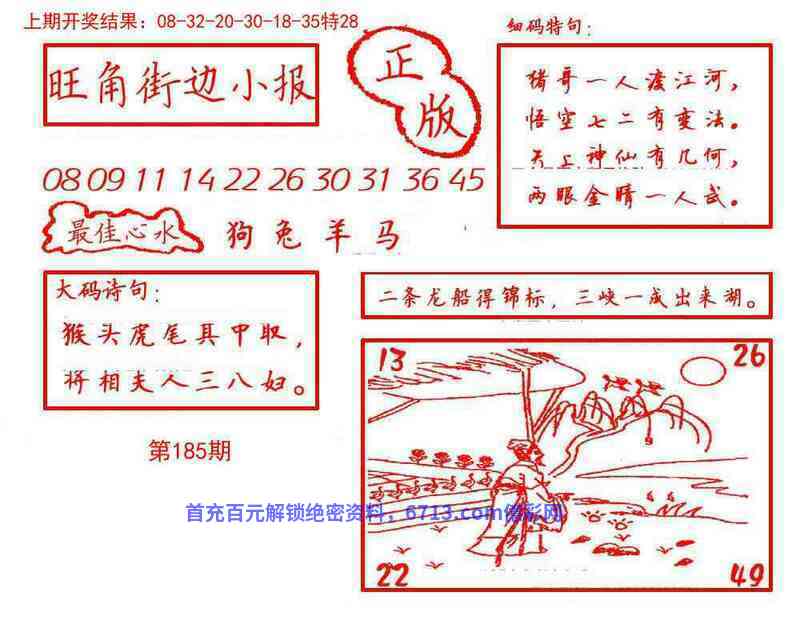 上期开奖结果：08-32-20-30-18-35特28
旺角街边小报
正版
细码特句：
猪哥一人渡江河，
悟空七二有变法。
天上神仙有几何，
两眼金睛一人武。
08 09 11 14 22 26 30 31 36 45
最佳心水
狗兔羊马
大码诗句：
猴头虎尾其中取，
将相夫人三八妇。
二条龙船得锦标，三峡一成出来湖。
第185期
13
26
22
49
首充百元解锁绝密资料，6713.com信彩网